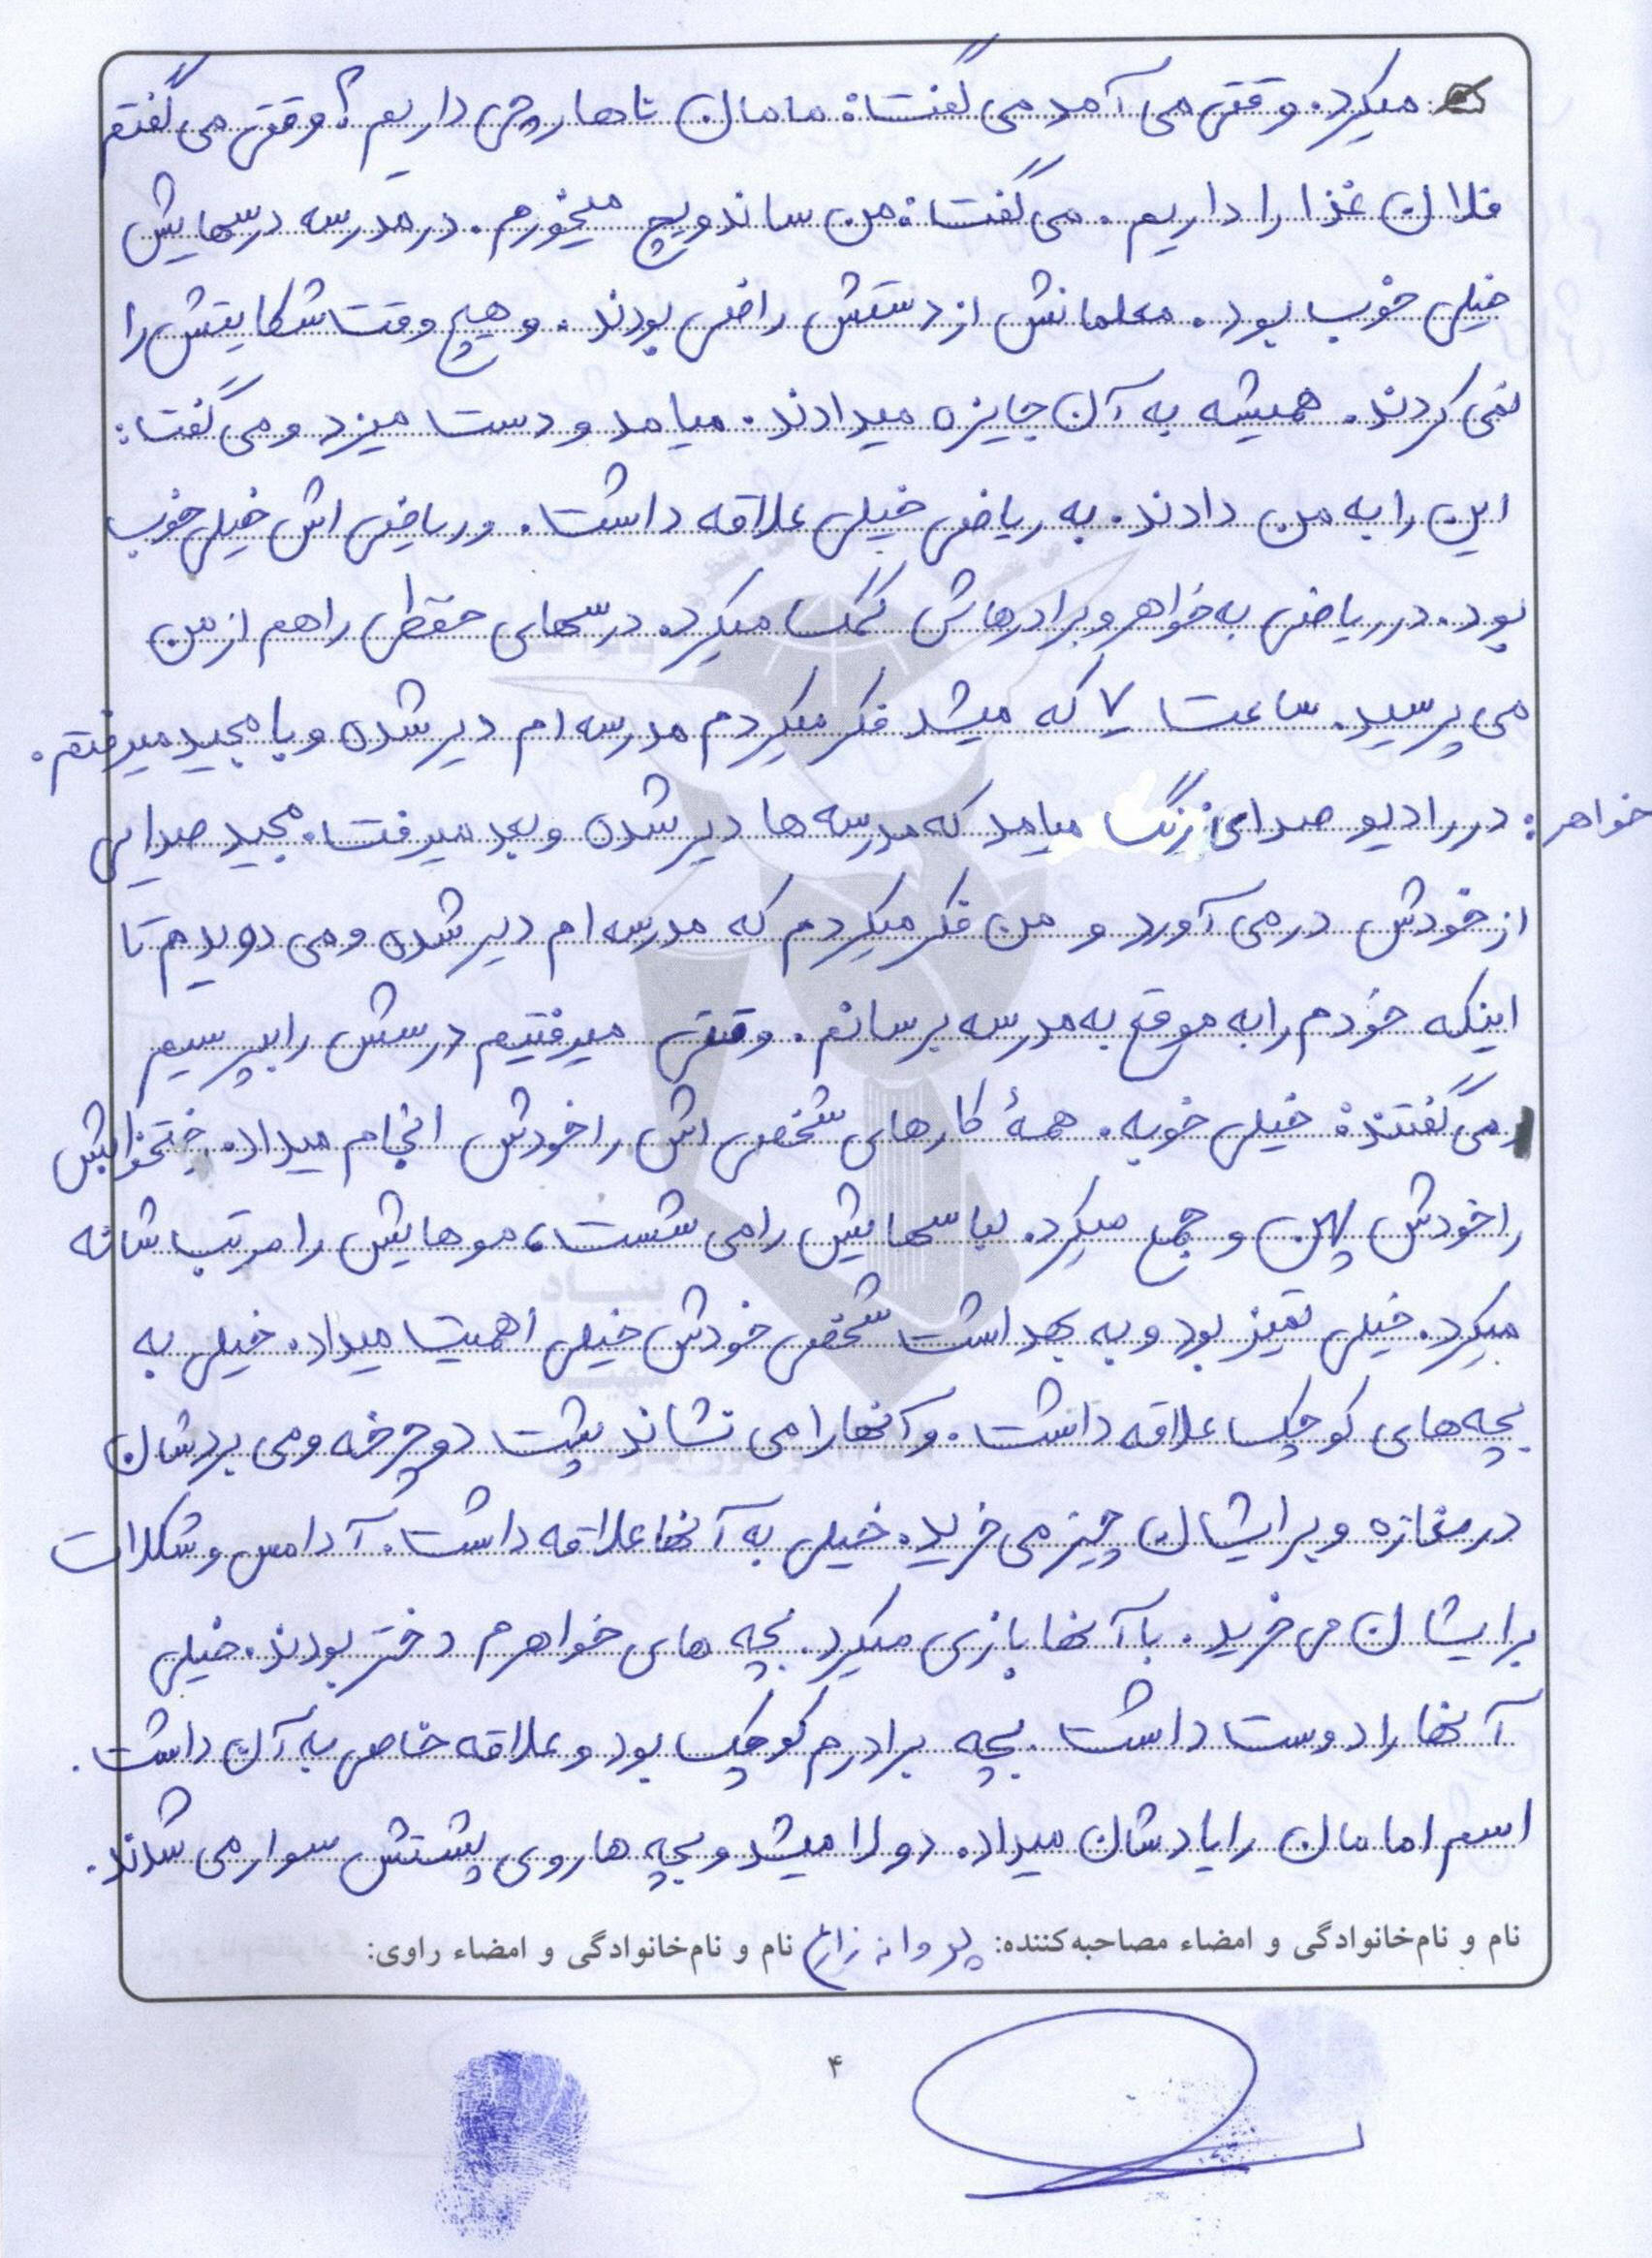 میکرد. وقتی می آمد می گفت: مامان ناهار چی داریم؟ وقتی می گفتم
فلان غذا را داریم. می گفت: من ساندویچ میخورم. در مدرسه درسهایش
خیلی خوب بود. معلمانش از دستش راضی بودند. و هیچ وقت شکایتش را
نمی کردند. همیشه به آن جایزه میدادند. میامد و دست میزد و می گفت:
این را به من دادند. به ریاضی خیلی علاقه داشت. و ریاضی اش خیلی خوب
بود. در ریاضی به خواهر و برادرهاش کمک میکرد. درسهای حفظی را هم از من
می پرسید. ساعت ۷ که میشد فکر میکردم مدرسه ام دیر شده و با مجید میرفتم.
خواهر: در رادیو صدای زنگ میامد که مدرسه ها دیر شده و بعد میرفت. مجید صدایی
از خودش در می آورد و من فکر میکردم که مدرسه ام دیر شده و می دویدم تا
اینکه خودم را به موقع به مدرسه برسانم. وقتی میرفتیم درسش را بپرسیم
می گفتند: خیلی خوبه. همهٔ کارهای شخصی اش را خودش انجام میداد. ختخوابش
را خودش پهن و جمع میکرد. لباسهایش را می شست، موهایش را مرتب شانه
میکرد. خیلی تمیز بود و به بهداشت شخصی خودش خیلی اهمیت میداد. خیلی به
بچه های کوچک علاقه داشت. و آنها را می نشاند پشت دوچرخه و می بردشان
در مغازه و برایشان چیز می خرید. خیلی به آنها علاقه داشت. آدامس و شکلات
برایشان می خرید. با آنها بازی میکرد. بچه های خواهرم دختر بودند. خیلی
آنها را دوست داشت. بچه برادرم کوچک بود و علاقه خاصی به آن داشت.
اسم امامان را یادشان میداد. دولا میشد و بچه ها روی پشتش سوار می شدند.
نام و نام‌خانوادگی و امضاء مصاحبه‌کننده: پروانه زارع نام و نام‌خانوادگی و امضاء راوی:
۴
بنیاد
شهید